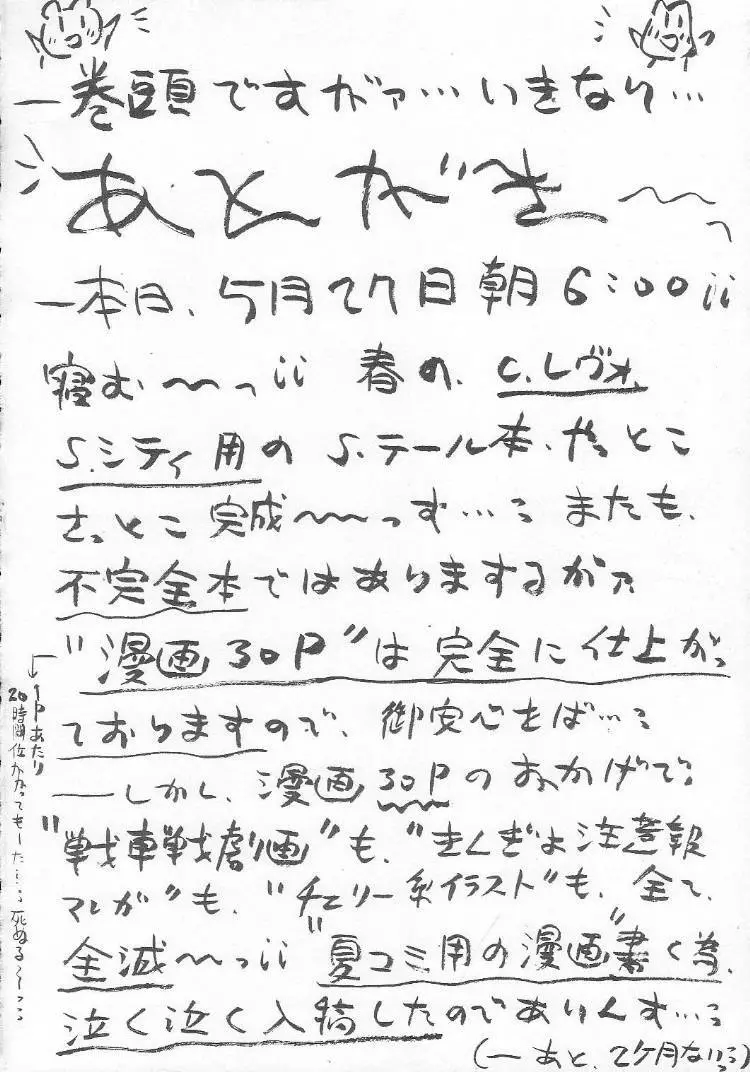 ―巻頭ですがァ…いきなり…
あとがき～～っ
―本日、5月27日朝6:00¡¡
寝む～～っ¡¡ 春の、C.レヴォ、
S.シティ用のS.テール本、やっとこ
さっとこ完成～～っす…: またも、
不完全本ではありまするがァ
"漫画30P"は完全に仕上がっ
ておりますので、御安心をば…:
―しかし、漫画30Pのおかげで:
"戦車戦劇画"も、"きんぎょ注意報
マンガ"も、"チェリー系イラスト"も、全て、
全滅～～っ¡¡ "夏コミ用の漫画"書く為、
泣く泣く入稿したのでありんす…:
(―あと、2ケ月ないっ:)
←1Pあたり
20時間位かかってもーた…: 死ぬる～っ: